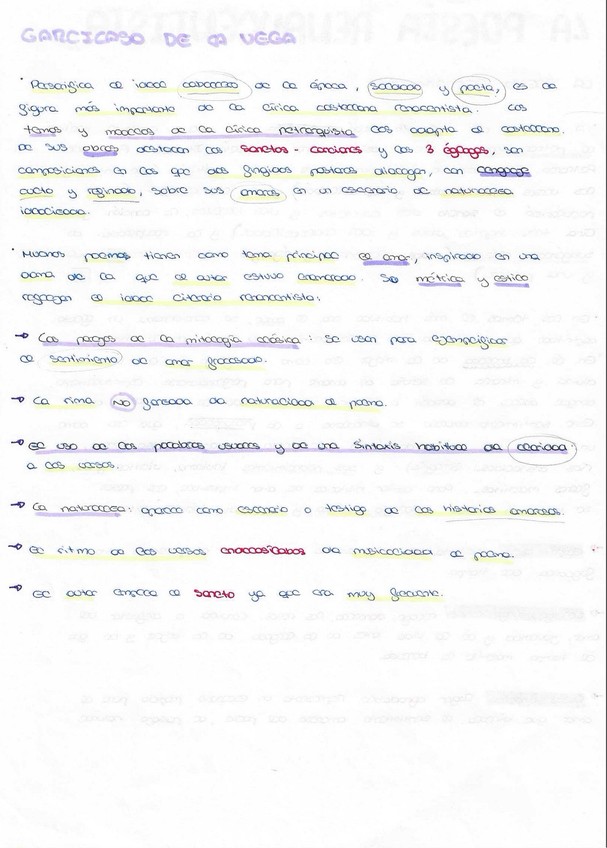 GARCILASO DE LA VEGA
· Personifica el ideal caballero de la época, soldado y poeta, es la
figura más importante de la lírica castellana renacentista. Los
temas y modelos de la lírica petrarquista los adapta al castellano.
De sus obras destacan los sonetos - canciones y las 3 églogas, son
composiciones en las que dos fingidos pastores dialogan, con lenguaje
culto y refinado, sobre sus amores en un escenario de naturaleza
idealizada.
· Muchos poemas tienen como tema principal el amor, inspirado en una
dama de la que el autor estuvo enamorado. Su métrica y estilo
reflejan el ideal literario renacentista:
→ Los personajes de la mitología clásica: se usan para ejemplificar
el sentimiento de amor fracasado.
→ La rima NO forzada da naturalidad al poema.
→ El uso de las palabras usuales y de una sintaxis habitual da claridad
a los versos.
→ La naturaleza: aparece como escenario o testigo de las historias amorosas.
→ El ritmo de los versos endecasílabos da musicalidad al poema.
→ El autor emplea el soneto ya que era muy frecuente.